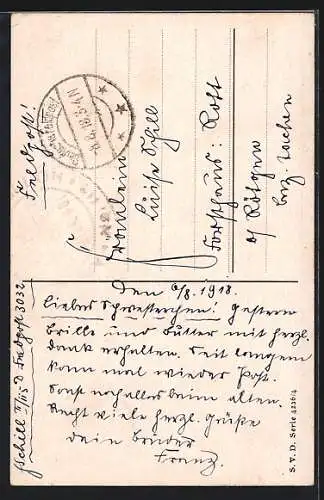 Feldpost!
Fräulein
Luise Schill
Forsthaus: Rott
b/ Rötgen
Bez. Aachen
Den 6/8. 1918.
Liebes Schwesterchen! Gestern
Brille und Butter mit herzl.
Dank erhalten. Seit langem
kam mal wieder Post.
Sonst noch alles beim alten.
Recht viele herzl. Grüße
dein Bruder
Franz.
Schill Feldpost 3032
S. V. D. Serie 4216/4